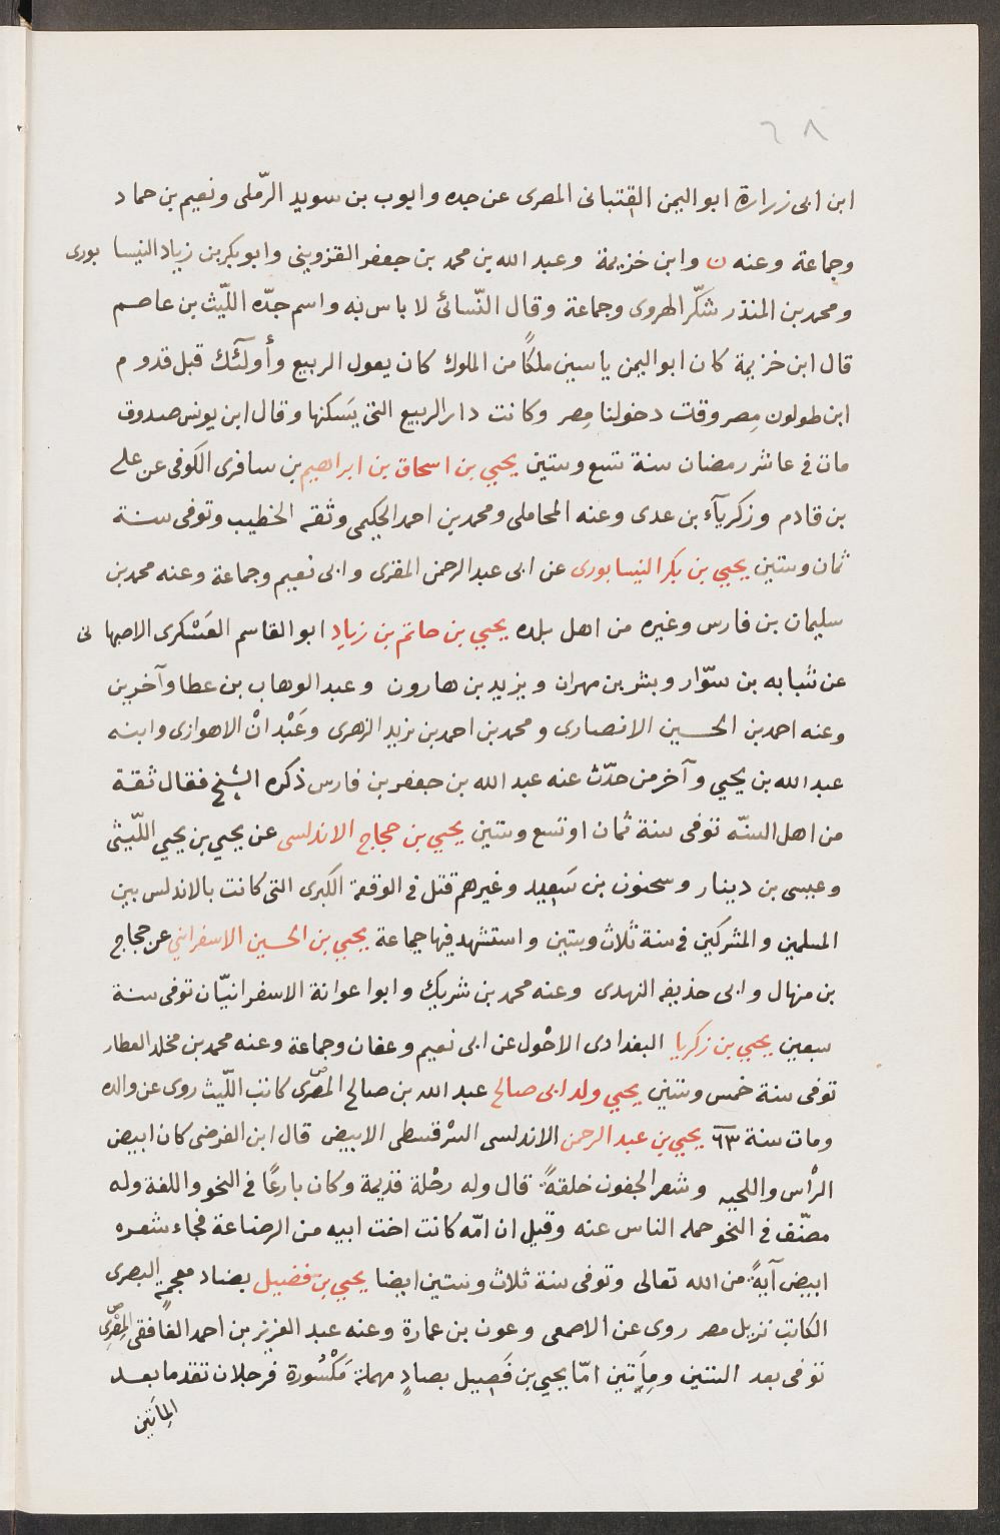 ٦٨
ابن ابى زرارة ابو اليمن القتبانى المصرى عن جده وايوب بن سويد الرّملى ونعيم بن حماد
وجماعة وعنه ن وابن خزيمة وعبد الله بن محمد بن جعفر القزوينى وابو بكر بن زياد النيسابورى
ومحمد بن المنذر شكّر الهروى وجماعة وقال النّسائى لا باس به واسم جدّه اللّيث بن عاصم
قال ابن خزيمة كان ابو اليمن ياسين ملكًا من الملوك كان يعول الربيع وأولئك قبل قدوم
ابن طولون مِصر وقت دخولنا مِصر وكانت دار الربيع التى يَسكنها وقال ابن يونس صدوق
مات فى عاشر رمضان سنة تسع وستين يحيي بن اسحاق بن ابراهيم بن سافرى الكوفى عن على
بن قادم وزكريآء بن عدى وعنه المحاملى ومحمد بن احمد الحكيمى وثقه الخطيب وتوفى سنة
ثمان وستين يحيي بن بكر النيسابورى عن ابى عبد الرحمن المقرى وابى نعيم وجماعة وعنه محمد بن
سليمان بن فارس وغيره من اهل بلده يحيي بن حاتم بن زيادِ ابو القاسم العَسْكرى الاصبهانى
عن شبابه بن سوّار وبشر بن مهران ويزيد بن هارون وعبد الوهاب بن عطا وآخرين
وعنه احمد بن الحسين الانصارى ومحمد بن احمد بن يزيد الزهرى وعَبْدانْ الاهوازى وابنه
عبد الله بن يحيي وآخر من حدّث عنه عبد الله بن جعفر بن فارس ذكره الشيخ فقال ثقة
من اهل السنّه توفى سنة ثمان او تسع وستين يحيي بن حجاج الاندلسى عن يحيي بن يحيي اللّيثى
وعيسى بن دينار وسحنون بن سَعِيد وغيرهم قتل فى الوقعة الكبرى التى كانت بالاندلس بين
المسلمين والمشركين فى سنة ثلاث وستين واستشهد فيها جماعة يحيي بن الحسين الاسفراينى عن حجاج
بن منهال وابى حذيفه النهدى وعنه محمد بن شريك وابوا عوانة الاسفرانيّان توفى سنة
سبعين يحيي بن زكريا البغدادى الاحْول عن ابى نعيم وعفان وجماعة وعنه محمد بن مخلد العطار
توفى سنة خمس وستين يحيي ولد ابى صالح عبد الله بن صالح المصْرى كاتب اللّيث روى عن والده
ومات سنة ٦٣ يحيي بن عبد الرحمن الاندلسى السْرقسطى الابيض قال ابن الفرضى كان ابيض
الرأس واللحيه وشعر الجفون خلقةً قال وله رحْلة قديمة وكان بارعًا فى النحو واللغة وله
مصنّف فى النحو حمله الناس عنه وقيل ان امّه كانت اخت ابيه من الرضاعة فجاء شعره
ابيض آيةً من الله تعالى وتوفى سنة ثلاث وستين ايضا يحيي بن فضيل بضاد معجمةٍ البصرى
الكاتب نزيل مصر روى عن الاصمعى وعون بن عمارة وعنه عبد العزيز بن احمد الغافقى المِصْرى
توفى بعد الستين ومِاَتين امّا يحيي بن فَصِيل بصادٍ مهملة مَكْسُورة فرجلان تقدما بعد
المِاَتين